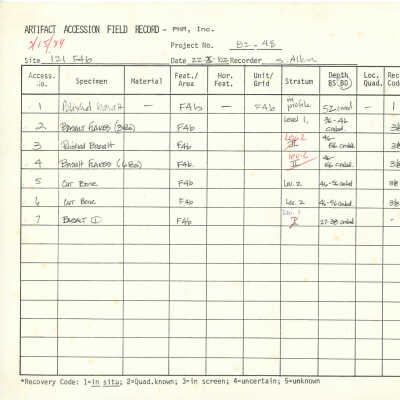 ARTIFACT ACCESSION FIELD RECORD - PHR, Inc.
2/15/84 Project No. 82-48
Site 121 F4b Date 22 X 82 Recorder S. Allen
Access. No. Specimen Material Feat./ Area Hor. Feat. Unit/ Grid Stratum Depth BS/BD Loc. Quad. Rec Code
1 Polished Basalt — F4b — F4b in profile 52 cmbd — 1
2 Basalt Flakes F4b Level 1, 36-46 cmbd.
3 Polished Basalt F4b Lev. 2 II 46- 56 cmbd
4 Basalt Flakes F4b Lev. 2 II 46- 56 cmbd
5 Cut Bone F4b Lev. 2 46-56 cmbd
6 Cut Bone F4b Lev. 2 46-56 cmbd
7 Basalt 1 F4b Lev. 1 I 27-38 cmbd -
*Recovery Code: 1=in situ; 2=Quad.known; 3=in screen; 4=uncertain; 5=unknown